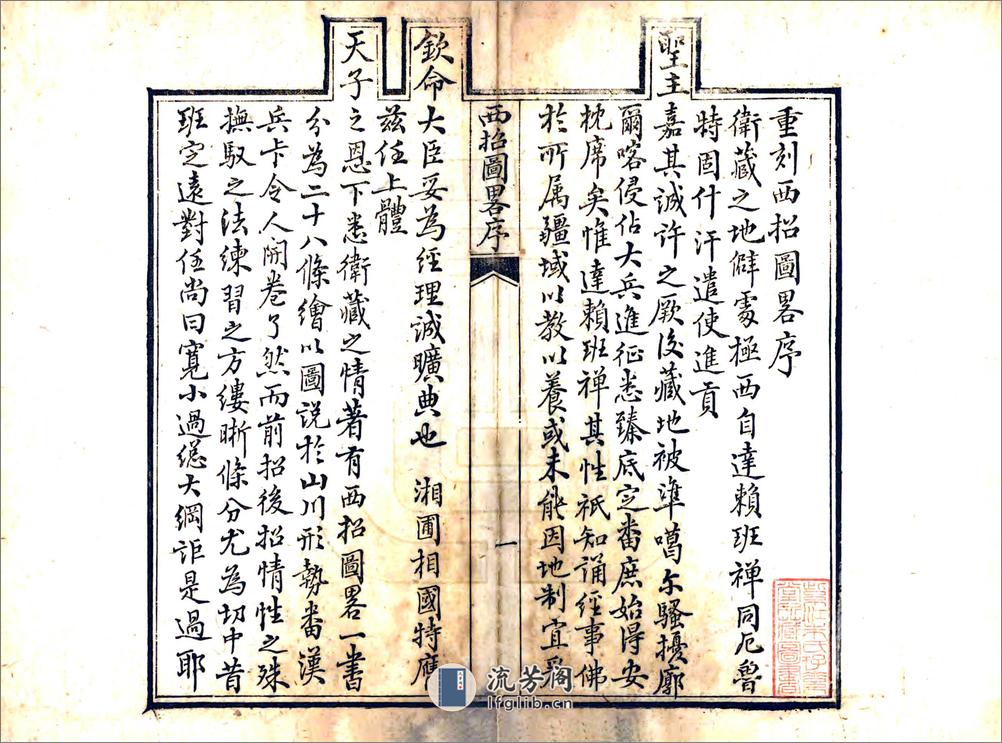 重刻西招圖畧序
衛藏之地僻處極西自達賴班禪同厄魯
特固什汗遣使進貢
聖主嘉其誠許之厥後藏地被準噶尔騷擾廓
爾喀侵佔大兵進征悉臻底定畨庶始得安
枕席矣惟達賴班禅其性祇知誦經事佛
於所属疆域以教以養或未能因地制宜爰
西招圖畧序
一
欽命大臣妥為經理誠曠典也 湘圃相國特膺
兹任上體
天子之恩下悉衛藏之情著有西招圖畧一書
分為二十八條繪以圖說於山川形勢畨漢
兵卡令人開卷了然而前招後招情性之殊
撫馭之法練習之方縷晰條分尤為切中昔
班定遠對任尚曰寬小過總大綱詎是過耶
流芳阁
lfglib.cn